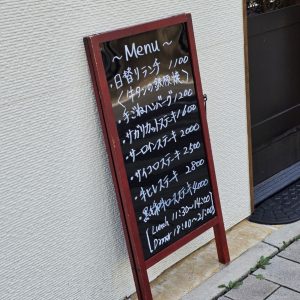 ～Menu～
・日替りランチ 1100
〈牛タンの鉄板焼〉
・手ごねハンバーグ 1200
・サガリカットステーキ 1600
・サーロインステーキ 2000
・サイコロステーキ 2500
・牛ヒレステーキ 2800
ロースステーキ 4200
Lunch 11:30~14:00
Dinner 18:00~21:00